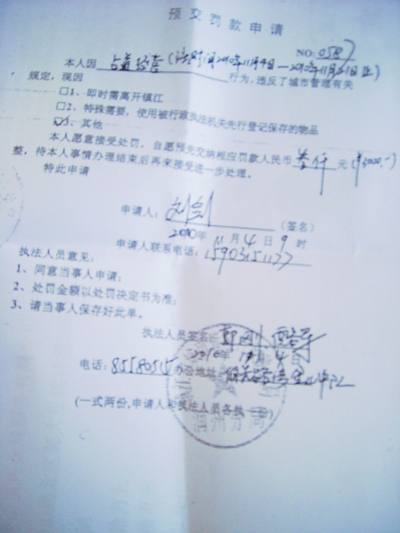 预交罚款申请
NO:0587
本人因占道经营(时间2010年11月4日—2010年11月21日止)
行为,违反了城市管理有关
规定,现因
□1、即时需离开镇江
□2、特殊需要,使用被行政执法机关先行登记保存的物品
□3、其他
本人愿意接受处罚,自愿预先交纳相应罚款人民币叁仟元(¥3000.-)
整,待本人事情办理结束后再来接受进一步处理。
特此申请
申请人:刘剑(签名)
2010年11月4日9时
申请人联系电话:15903151177
执法人员意见:
1、同意当事人申请;
2、处罚金额以处罚决定书为准;
3、请当事人保存好此单。
执法人员签名:
2010年11月4日
电话:85580515办公地址:
(一式两份,申请人和执法人员各执一份)
润州分局